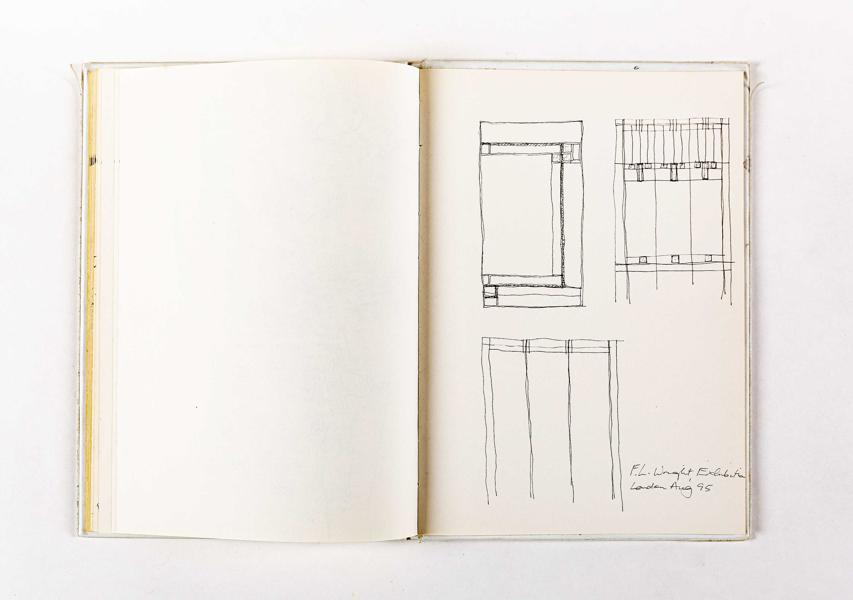 F.L. Wright Exhibition
London Aug 95